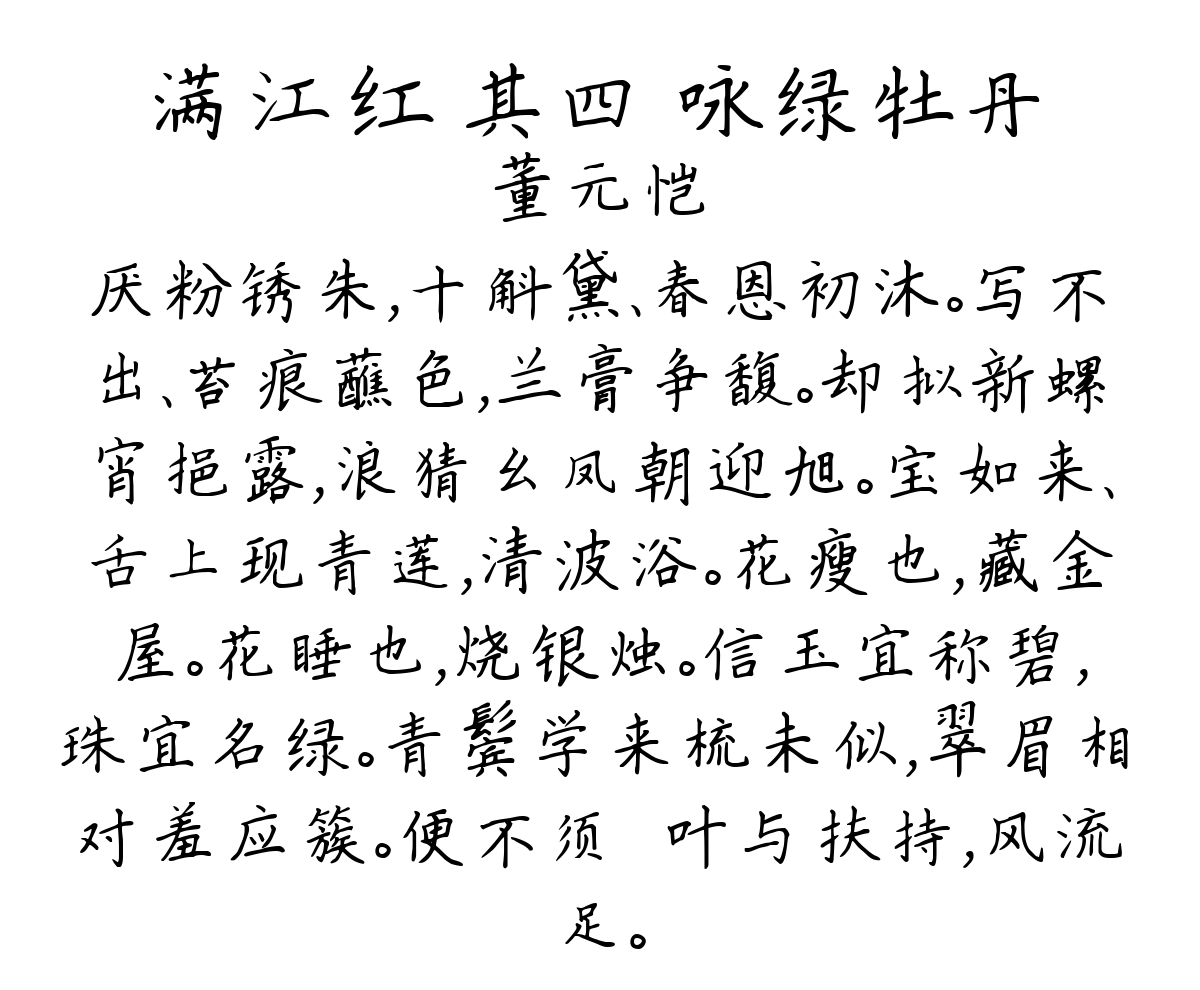 满江红 其四 咏绿牡丹
董元恺
厌粉锈朱,十斛黛、春恩初沐。写不
出、苔痕蘸色,兰膏争馥。却拟新螺
宵挹露,浪猜幺凤朝迎旭。宝如来、
舌上现青莲,清波浴。花瘦也,藏金
屋。花睡也,烧银烛。信玉宜称碧,
珠宜名绿。青鬓学来梳未似,翠眉相
对羞应簇。便不须 叶与扶持,风流
足。